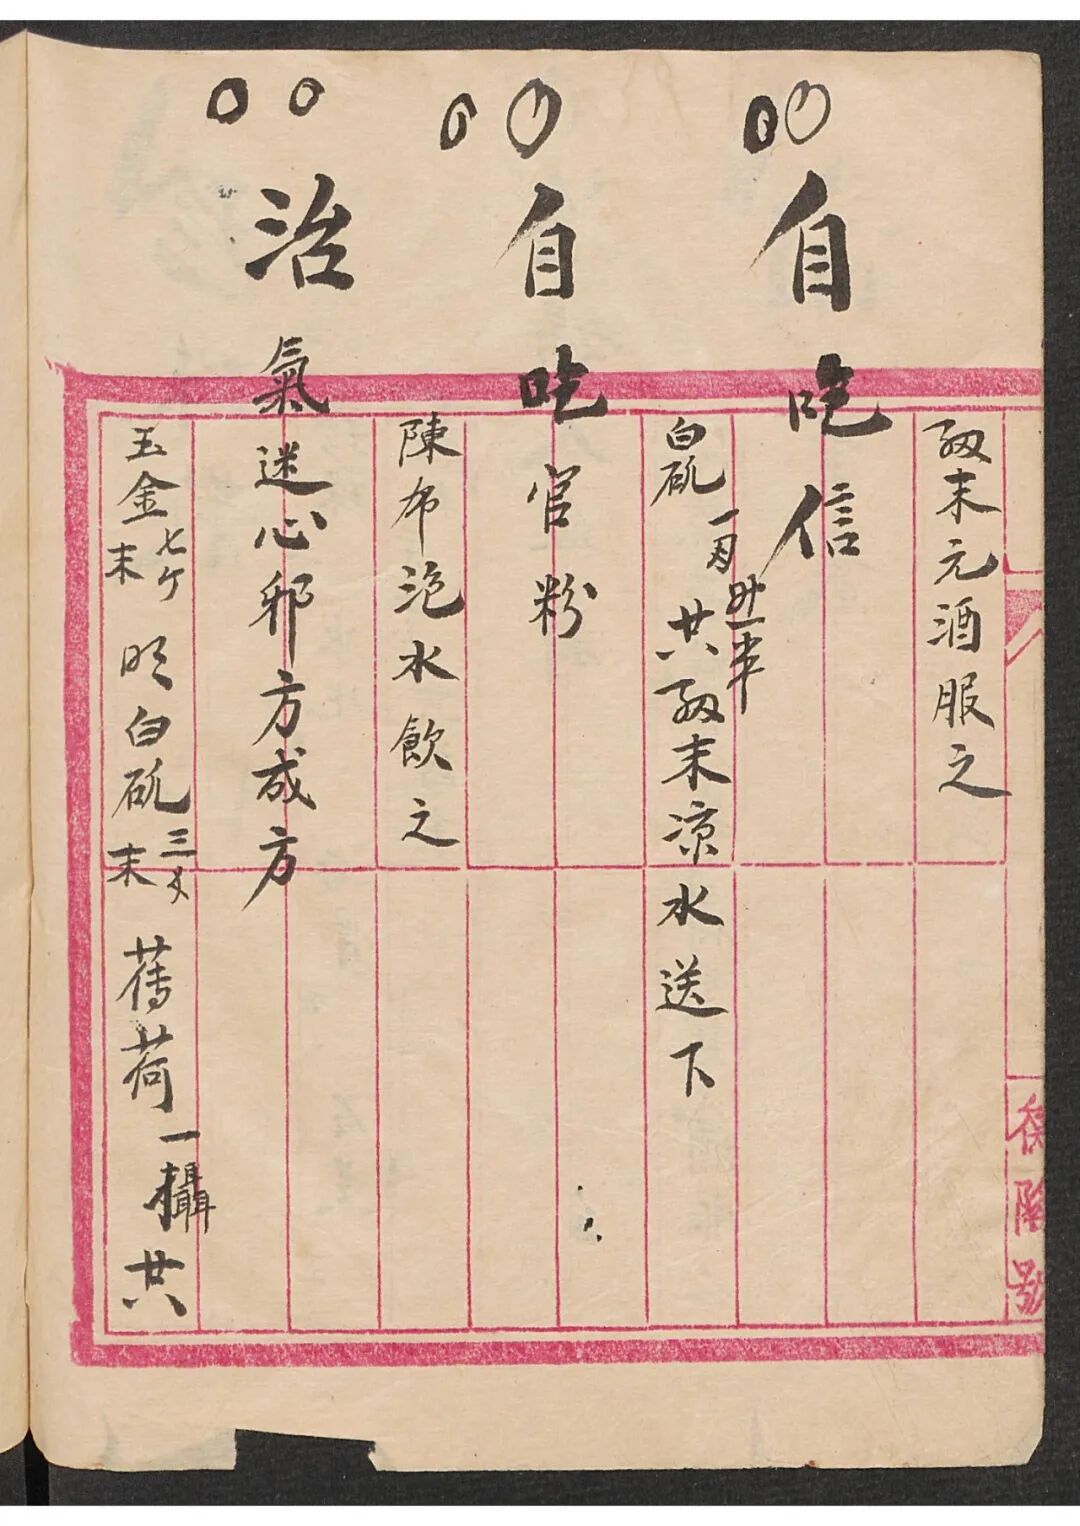 㕛末元酒服之
自吃信
白矾一両 共㕛末凉水送下
自吃官粉
陳布泡水飲之
治氣迷心邪方成方
玉金七个末 明白矾三钱末 薄荷一攝共